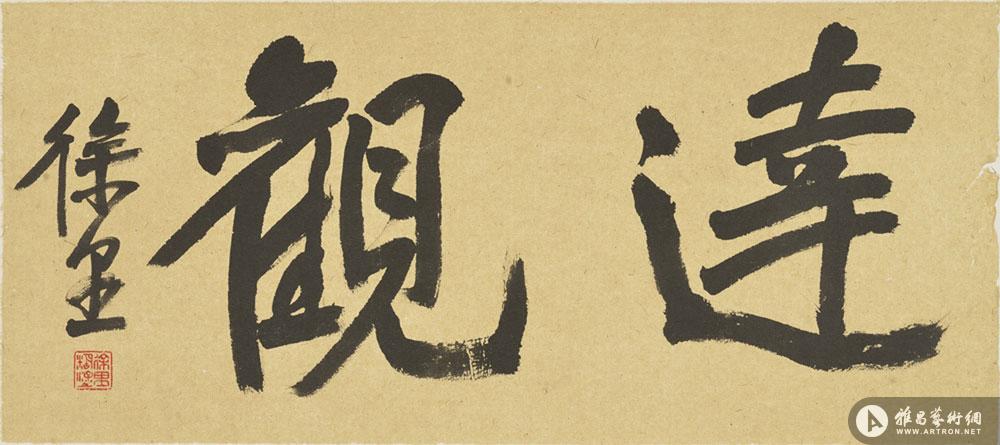 達觀
徐里
雅昌藝術網
WWW.ARTRON.NET